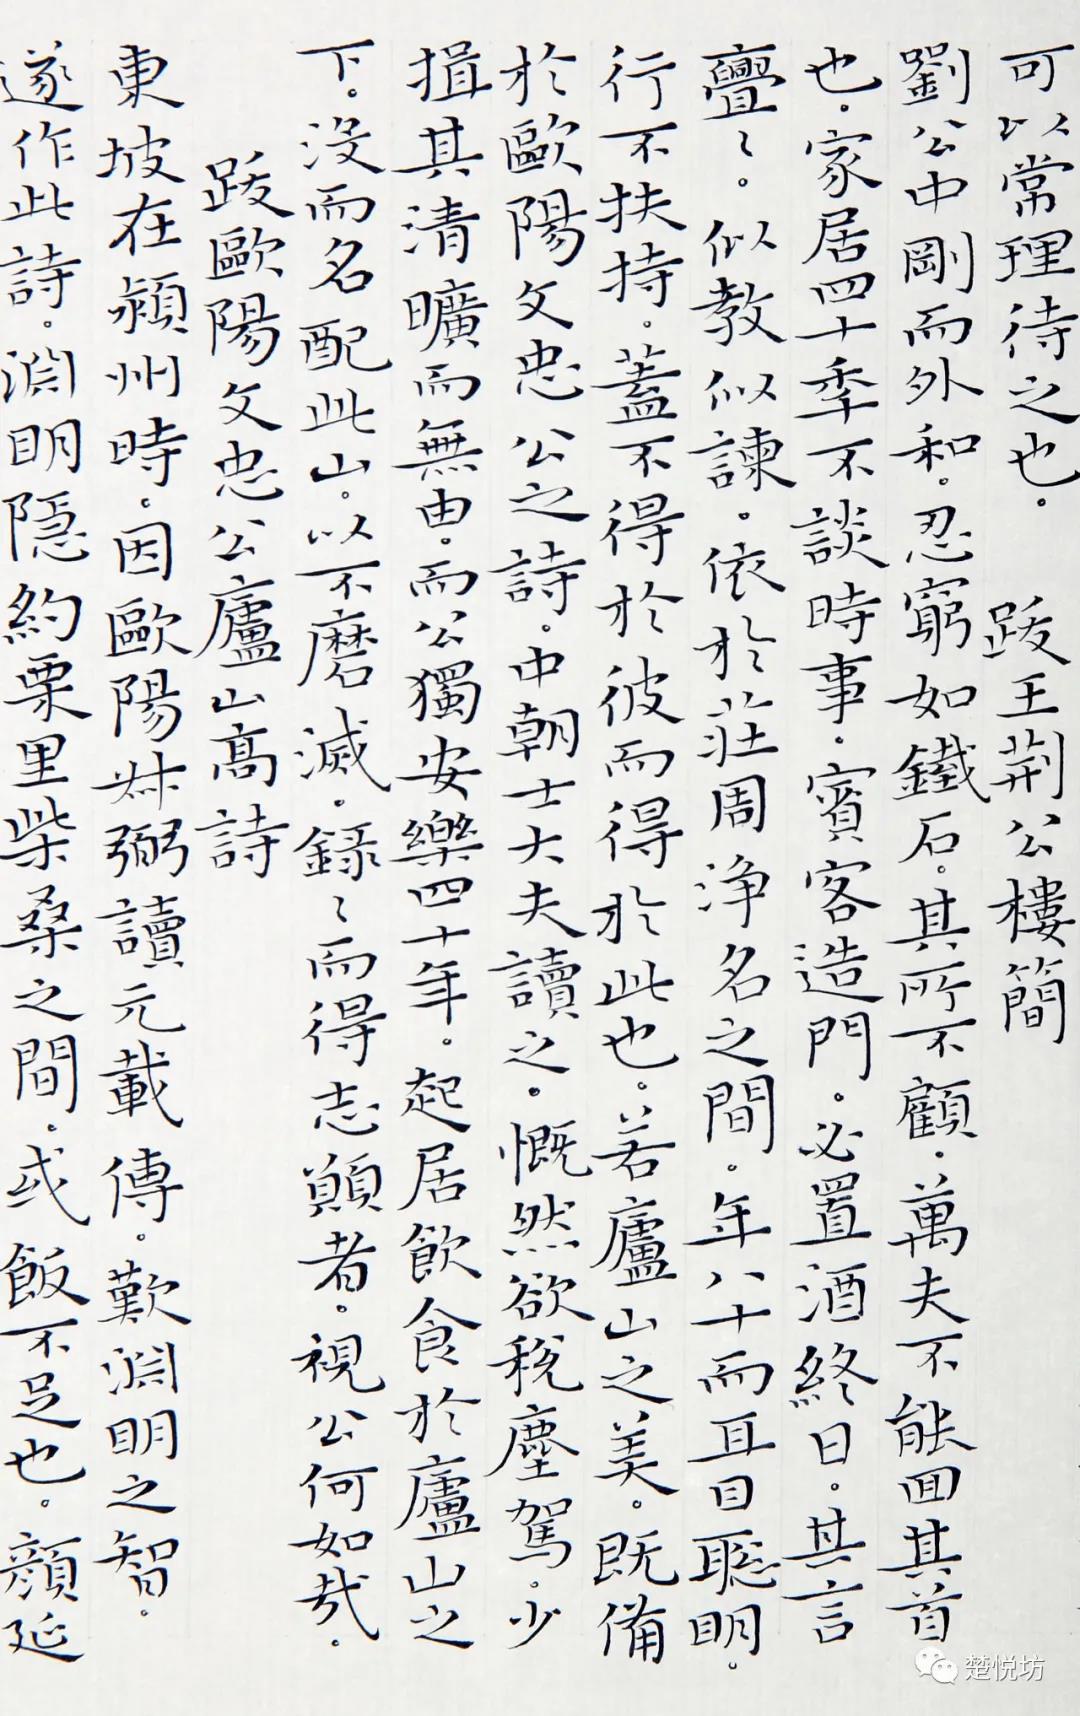 可以常理待之也。 跋王荆公樓簡
劉公中剛而外和。忍窮如鐵石。其所不顧。萬夫不能回其首
也。家居四十季不談時事。賓客造門。必置酒終日。其言
亹〻。似教似諫。依於莊周淨名之間。年八十而耳目聰明。
行不扶持。蓋不得於彼而得於此也。若廬山之美。既備
於歐陽文忠公之詩。中朝士大夫讀之。慨然欲稅塵駕。少
揖其清曠而無由。而公獨安樂四十年。起居飲食於廬山之
下。沒而名配此山。以不磨滅。錄〻而得志願者。視公何如哉。
跋歐陽文忠公廬山高詩
東坡在潁州時。因歐陽叔弼讀元載傳。歎淵明之智。
遂作此詩。淵明隱約栗里柴桑之間。或飯不足也。顏延
楚悦坊